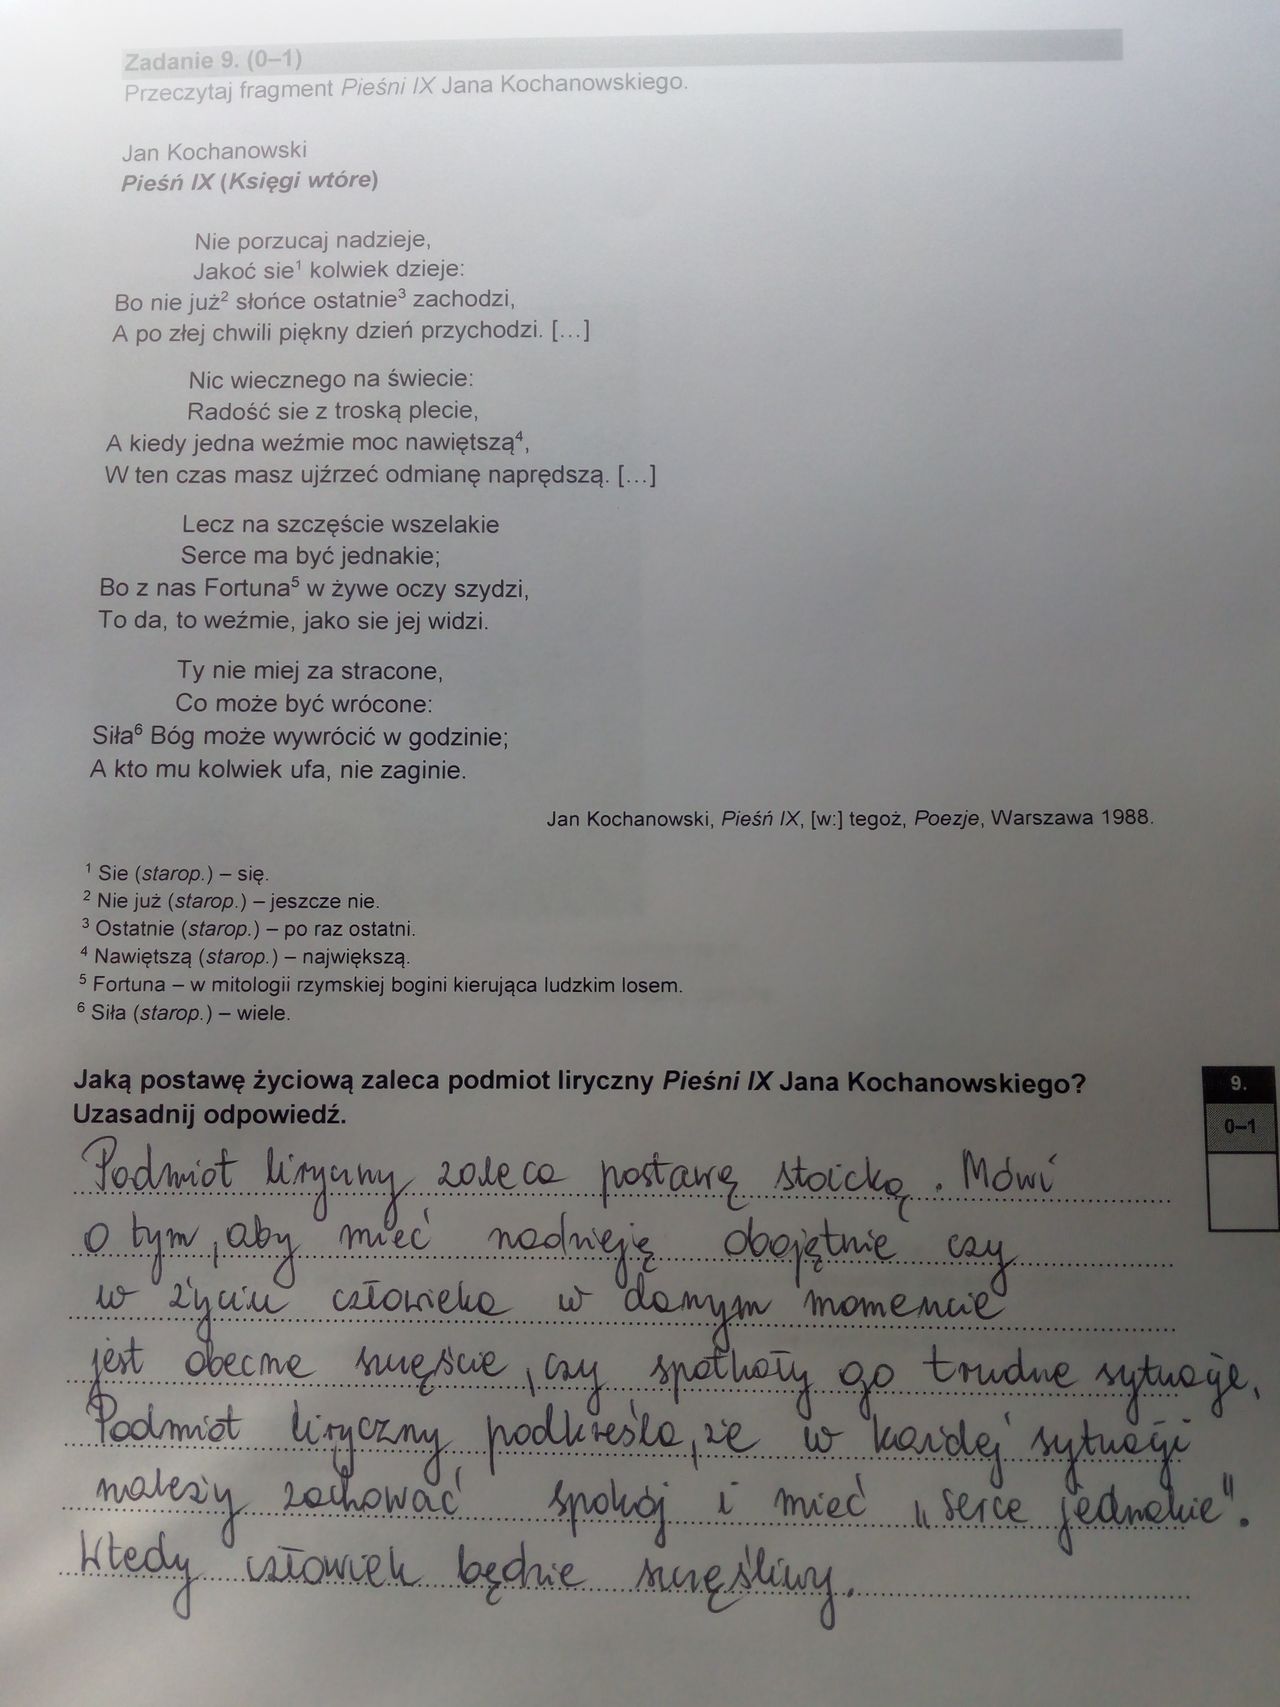 Zadanie 9. (0–1)
Przeczytaj fragment Pieśni IX Jana Kochanowskiego.
Jan Kochanowski
Pieśń IX (Księgi wtóre)
Nie porzucaj nadzieje,
Jakoć sie¹ kolwiek dzieje:
Bo nie już² słońce ostatnie³ zachodzi,
A po złej chwili piękny dzień przychodzi. [...]
Nic wiecznego na świecie:
Radość sie z troską plecie,
A kiedy jedna weźmie moc nawiętszą⁴,
W ten czas masz ujźrzeć odmianę naprędszą. [...]
Lecz na szczęście wszelakie
Serce ma być jednakie;
Bo z nas Fortuna⁵ w żywe oczy szydzi,
To da, to weźmie, jako sie jej widzi.
Ty nie miej za stracone,
Co może być wrócone:
Siła⁶ Bóg może wywrócić w godzinie;
A kto mu kolwiek ufa, nie zaginie.
Jan Kochanowski, Pieśń IX, [w:] tegoż, Poezje, Warszawa 1988.
¹ Sie (starop.) – się.
² Nie już (starop.) – jeszcze nie.
³ Ostatnie (starop.) – po raz ostatni.
⁴ Nawiętszą (starop.) – największą.
⁵ Fortuna – w mitologii rzymskiej bogini kierująca ludzkim losem.
⁶ Siła (starop.) – wiele.
Jaką postawę życiową zaleca podmiot liryczny Pieśni IX Jana Kochanowskiego?
Uzasadnij odpowiedź.
9.
0–1
Podmiot liryczny zaleca postawę stoicką. Mówi
o tym, aby mieć nadzieję obojętnie czy
w życiu człowieka w danym momencie
jest obecne szczęście, czy spotkały go trudne sytuacje.
Podmiot liryczny podkreśla, że w każdej sytuacji
należy zachować spokój i mieć „serce jednakie".
Wtedy człowiek będzie szczęśliwy.